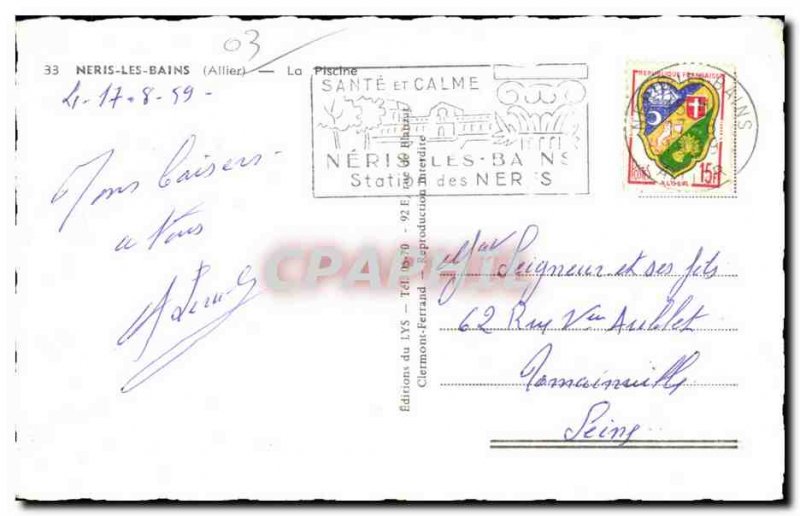 03
33 NERIS-LES-BAINS (Allier) — La Piscine
17-8-59-
SANTÉ ET CALME
NÉRIS-LES-BAINS
Station des NERFS
REPUBLIQUE FRANÇAISE
POSTES
15F
ALGER
Bons baisers
a Vous
Editions du LYS — Tél.
Clermont-Ferrand — Reproduction interdite
CPAPHIL
Seigneur et ses fils
62 Rue Aublet
Romainville
Seine